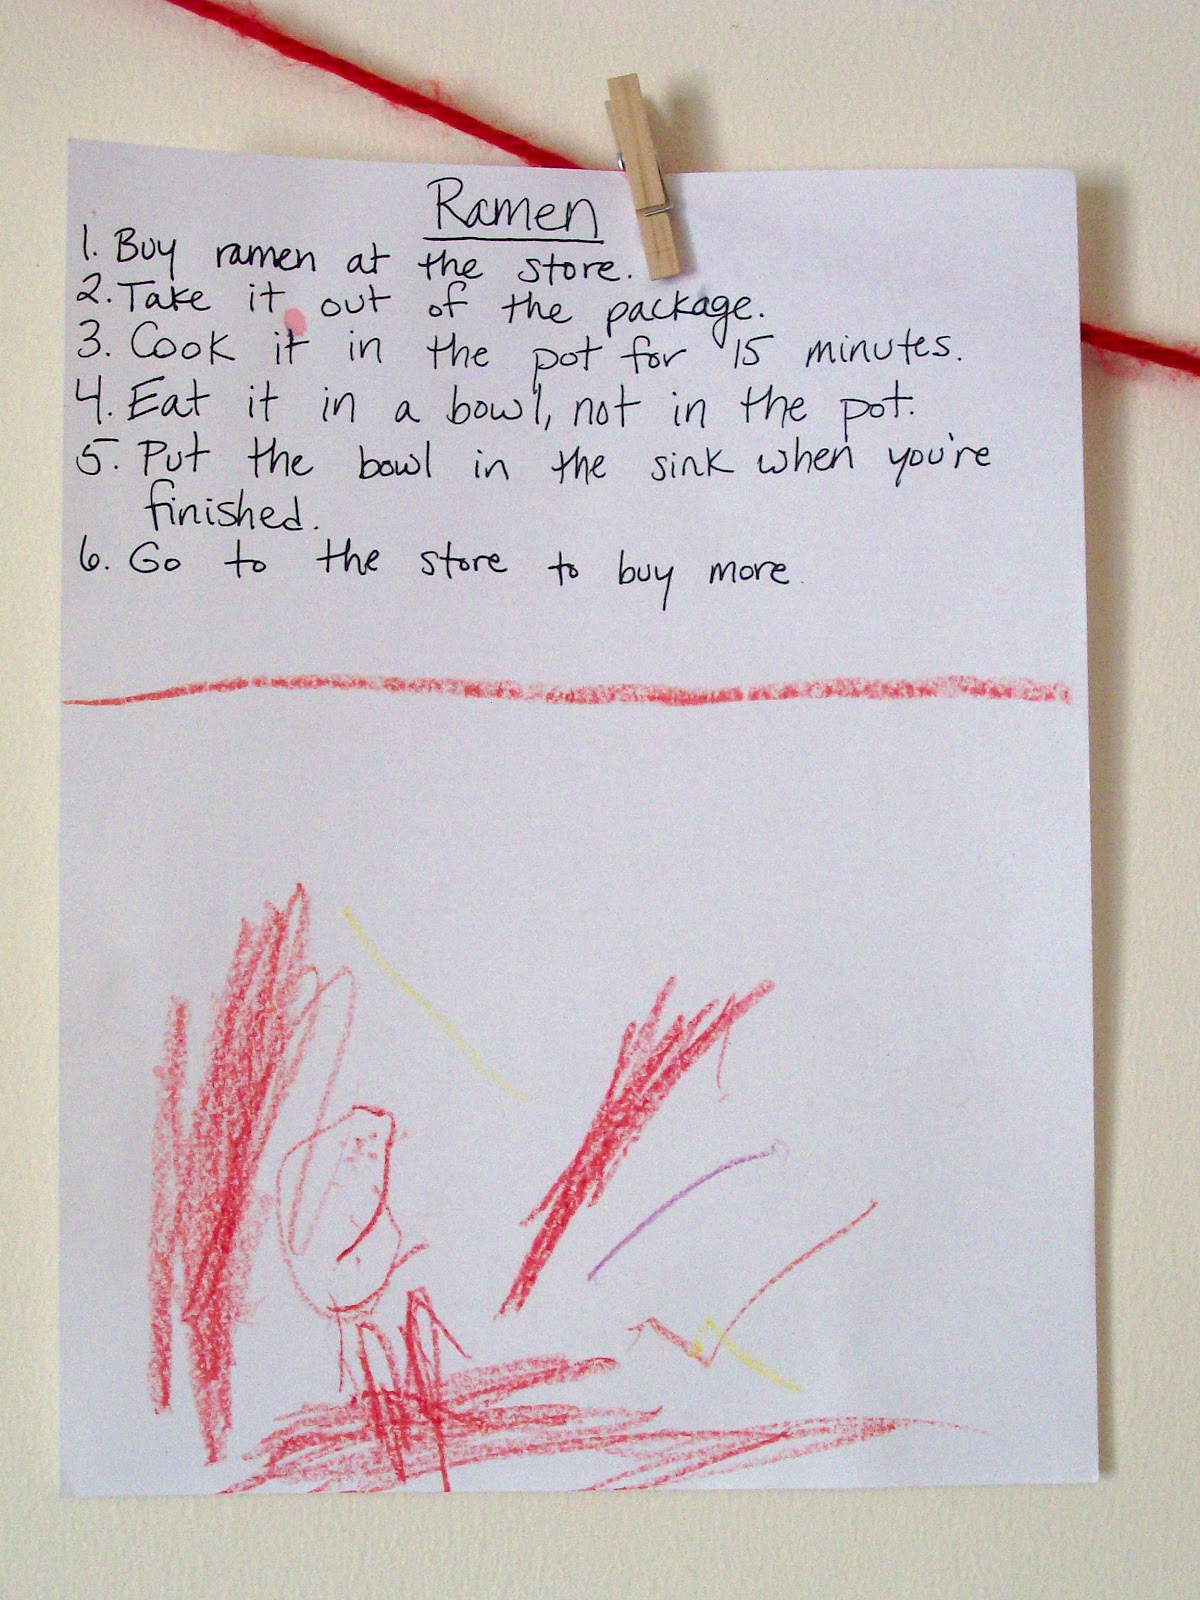 Ramen
1. Buy ramen at the store.
2. Take it out of the package.
3. Cook it in the pot for 15 minutes.
4. Eat it in a bowl, not in the pot.
5. Put the bowl in the sink when you're
finished.
6. Go to the store to buy more.